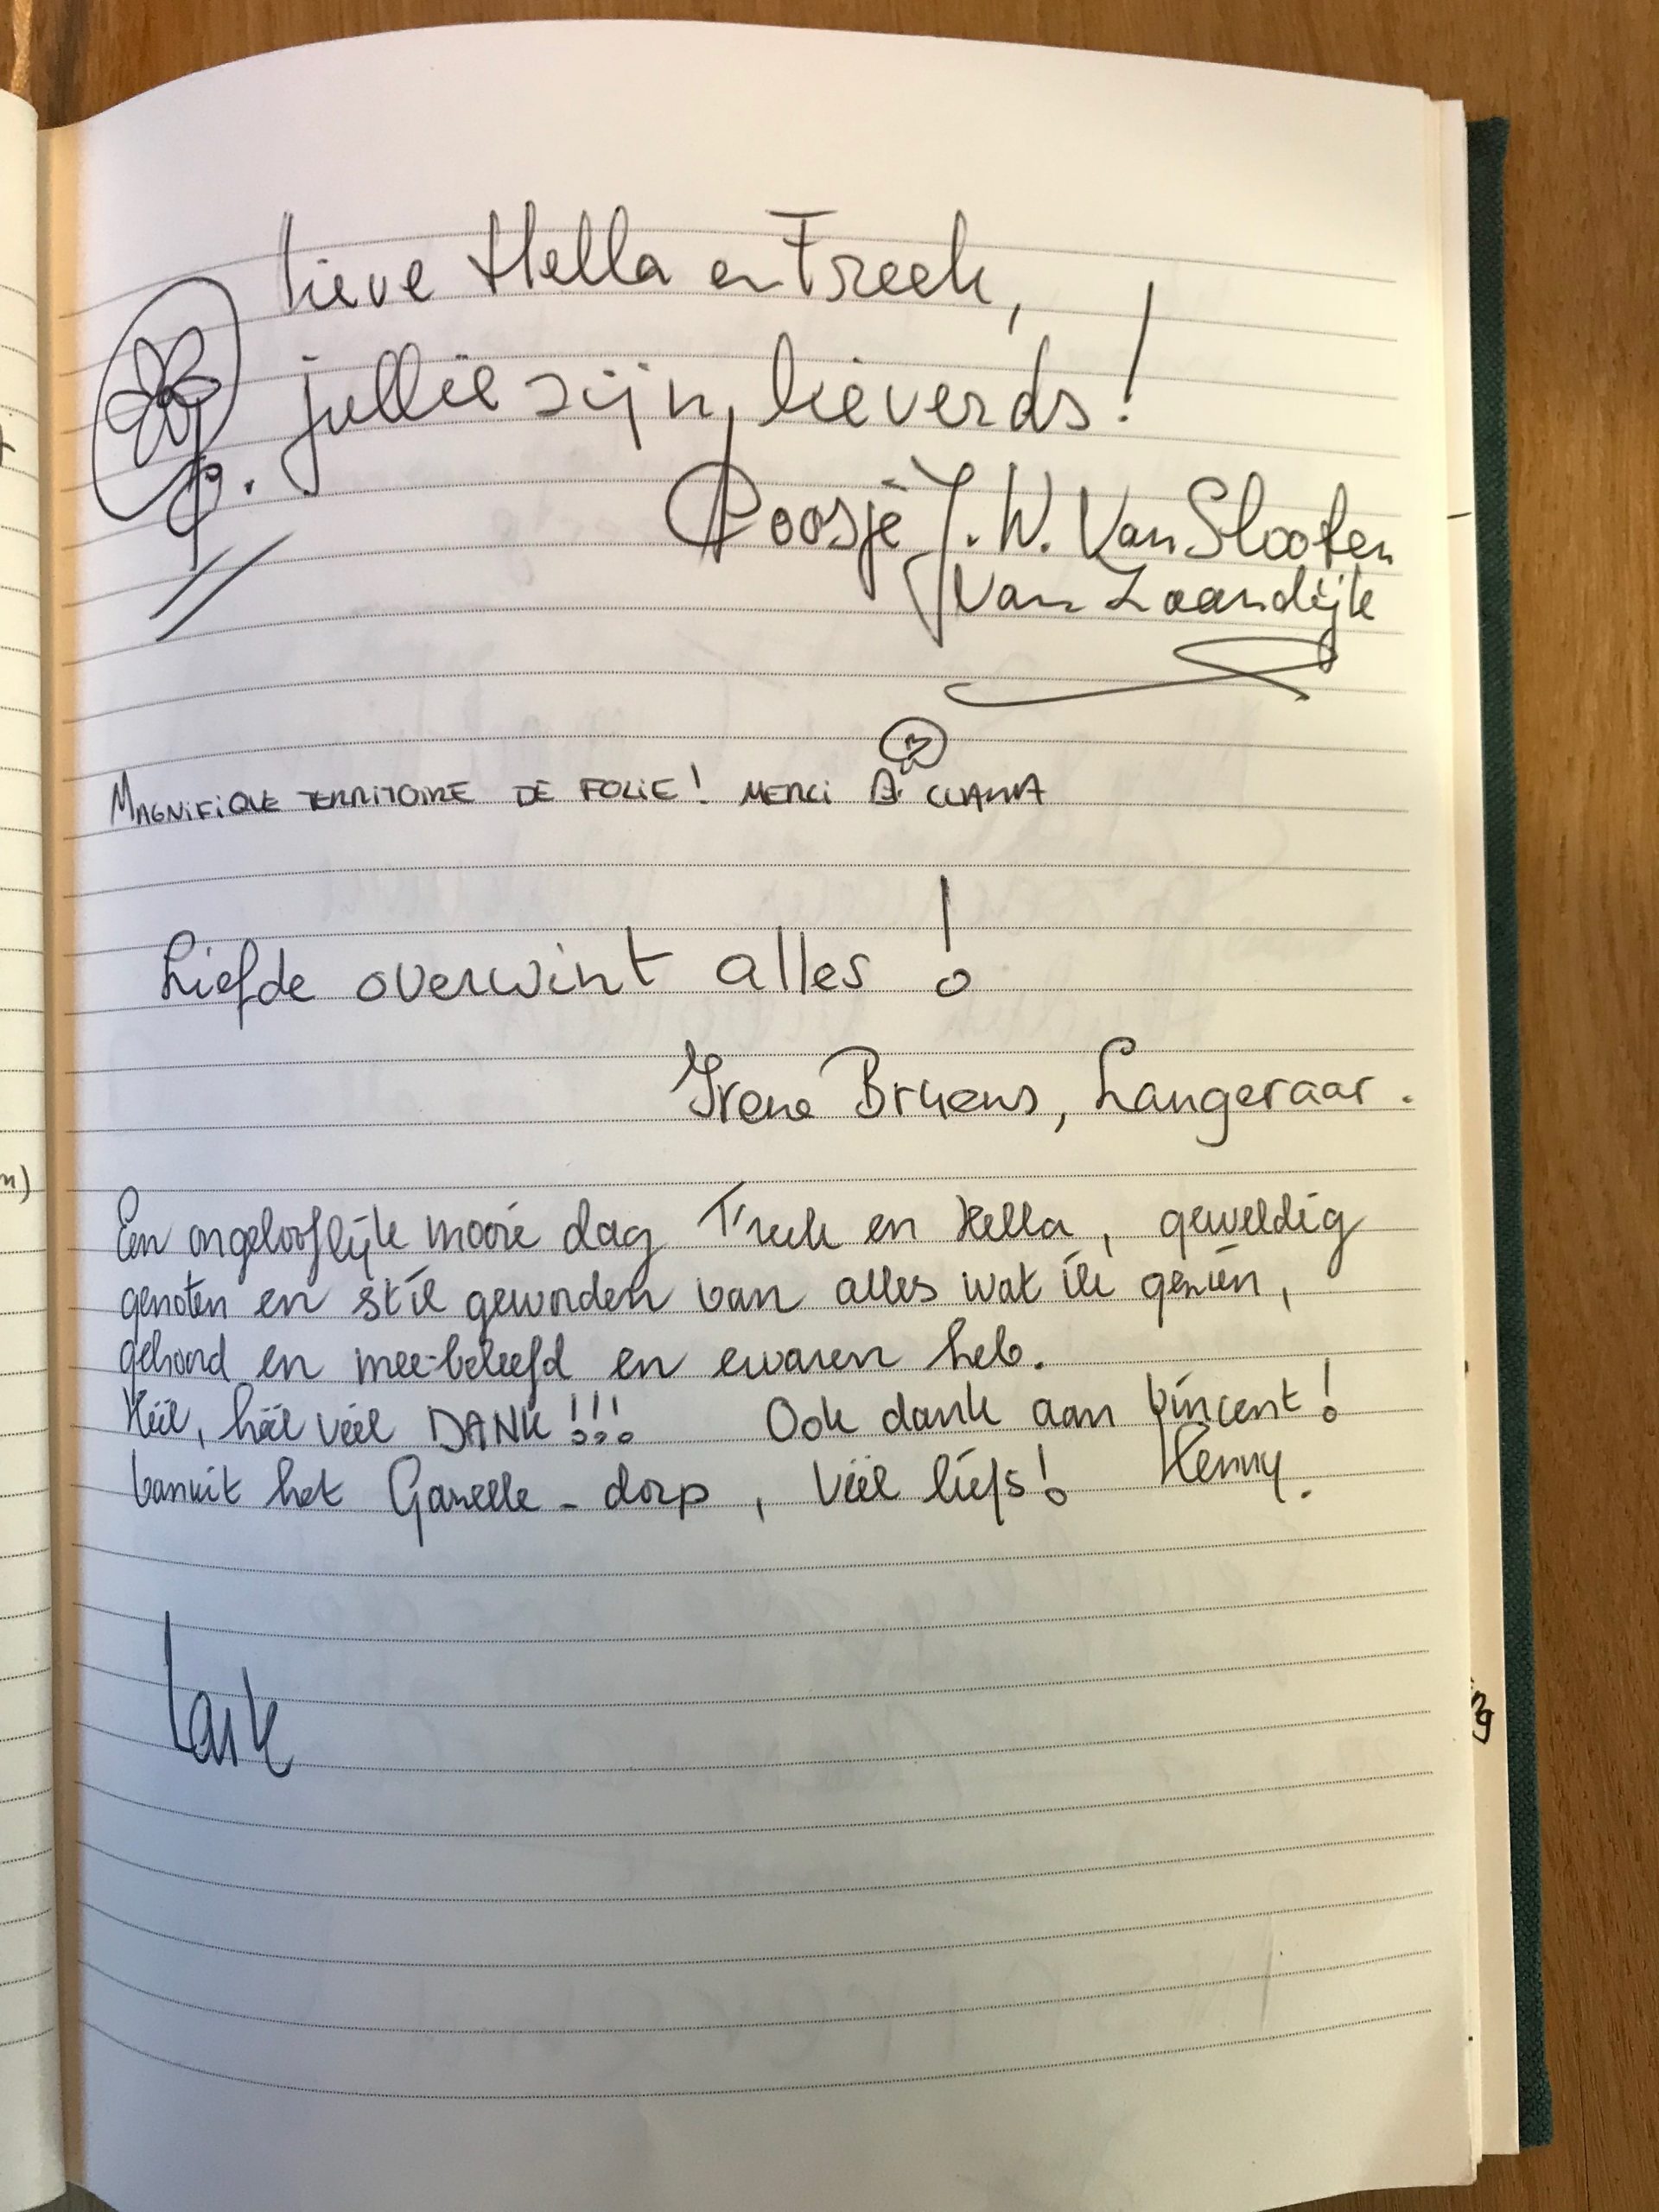 Lieve Hella en Freek,
jullie zijn lieverds!
Roosje J. W. Van Slooten
Van Zaandijk
MAGNIFIQUE TERRITOIRE DE FOLIE! MERCI
Liefde overwint alles!
Irene Bruens, Langeraar.
Een ongelooflijk mooie dag Freek en Hella, geweldig
genoten en stil geworden van alles wat ik gezien,
gehoord en mee-beleefd en ervaren heb.
Héél, héél véél DANK!!! Ook dank aan Vincent!
Vanuit het Gazelle-dorp, Véél liefs! Henny.